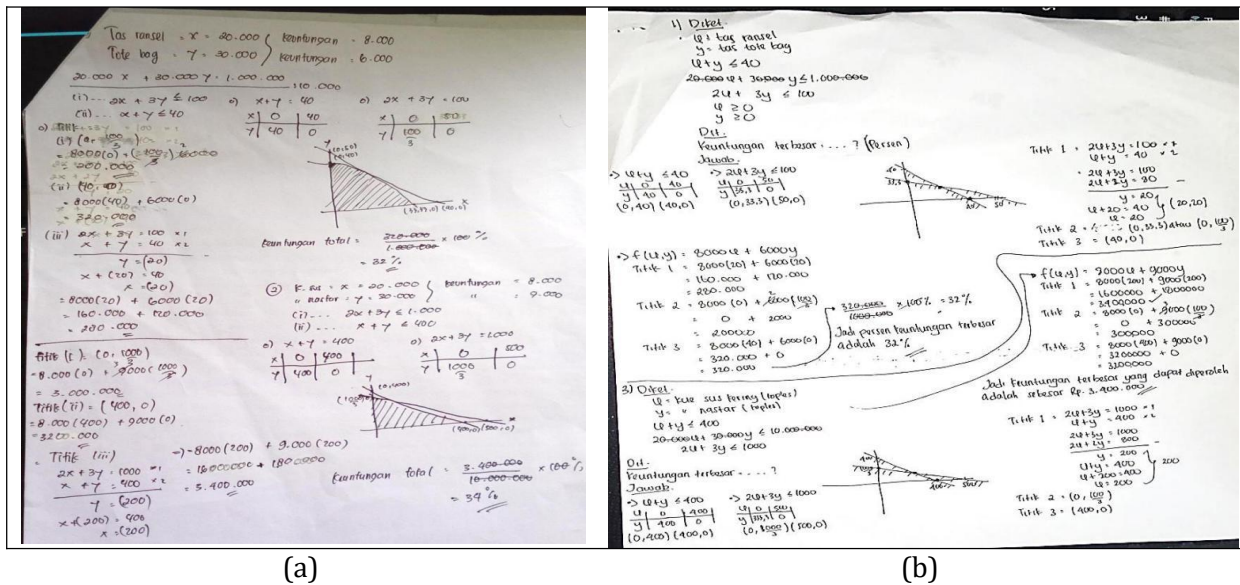 Tas ransel = x = 20.000 } keuntungan = 8.000
Tote bag = y = 30.000 } keuntungan = 6.000
20.000 x + 30.000 y = 1.000.000
: 10.000
(i)... 2x + 3y ≤ 100
(ii)... x + y ≤ 40
o) x+y = 40
x | 0 | 40
y | 40 | 0
o) 2x + 3y = 100
x | 0
y | 100/3 | 0
o) Titik
= 200.000
= 8000(40) + 6000(0)
= 320.000
(iii) 2x + 3y = 100 ×1
x + y = 40 ×2
y = (20)
x + (20) = 40
x = (20)
= 8000(20) + 6000(20)
= 160.000 + 120.000
= 280.000
(40,0)
Keuntungan total = 320.000/1.000.000 × 100 %
= 32 %
② K. sus = x = 20.000 } keuntungan = 8.000
" nastar = y = 30.000 } " = 9.000
(i)... 2x + 3y ≤ 1.000
(ii)... x + y ≤ 400
o) x+y = 400
x | 0 | 400
y | 400 | 0
o) 2x + 3y = 1000
x | 0 | 500
y | 1000/3 | 0
Titik (i) : (0, 1000/3)
= 8.000 (0) + 9000 (1000/3)
= 3.000.000
Titik (ii) = (400, 0)
= 8.000 (400) + 9000 (0)
= 3200.000
Titik (iii)
2x + 3y = 1000 ×1
x + y = 400 ×2
y = (200)
x + (200) = 400
x = (200)
=) 8000 (200) + 9.000 (200)
= 1600000 + 1800000
= 3.400.000
(0,400)
(400,0) (500,0)
Keuntungan total = 3.400.000/10.000.000 × 100 %
= 34 %
(a)
1) Diket.
x = tas ransel
y = tas tote bag
x + y ≤ 40
20.000 x + 30.000 y ≤ 1.000.000
2x + 3y ≤ 100
x ≥ 0
y ≥ 0
Dit.
Keuntungan terbesar .... ? (Persen)
Jawab.
-> x+y ≤ 40
x | 0 | 40
y | 40 | 0
(0,40) (40,0)
-> 2x+3y ≤ 100
x | 0 | 50
y | 33,3 | 0
(0,33.3) (50,0)
40
33,3
50
Titik 1 = 2x+3y = 100 ×1
x+y = 40 ×2
= 2x+3y = 100
2x+2y = 80
y = 20
x+20 = 40
x = 20
(20,20)
Titik 2 = (0,33.3) atau (0, 100/3)
Titik 3 = (40,0)
-> f(x,y) = 8000x + 6000y
Titik 1 = 8000(20) + 6000(20)
= 160.000 + 120.000
= 280.000
Titik 2 = 8000 (0) + 6000 (100/3)
= 0 + 2000
= 200000
Titik 3 = 8000 (40) + 6000 (0)
= 320.000 + 0
= 320.000
320.000/1000.000 × 100% = 32%
Jadi persen keuntungan terbesar
adalah 32%
-> f(x,y) = 8000x + 9000y
Titik 1 = 8000(200) + 9000(200)
= 1600000 + 1800000
= 3400000
Titik 2 = 8000 (0) + 9000 (100/3)
= 0 + 300000
= 300000
Titik 3 = 8000 (400) + 9000 (0)
= 3200000 + 0
= 3200000
Jadi keuntungan terbesar yang dapat diperoleh
adalah sebesar Rp. 3.400.000
3) Diket.
x = kue sus kering (toples)
y = " nastar (toples)
x + y ≤ 400
20.000x + 30.000y ≤ 10.000.000
2x + 3y ≤ 1000
Dit.
Keuntungan terbesar .... ?
Jawab.
-> x+y ≤ 400
x | 0 | 400
y | 400 | 0
(0,400) (400,0)
-> 2x+3y ≤ 1000
x | 0 | 500
y | 333,3 | 0
(0, 1000/3) (500,0)
400
500
Titik 1 = 2x+3y = 1000 ×1
x+y = 400 ×2
2x+3y = 1000
2x+2y = 800
y = 200
x+y = 400
x+200 = 400
x = 200
Titik 2 = (0, 100/3)
Titik 3 = (400,0)
(b)